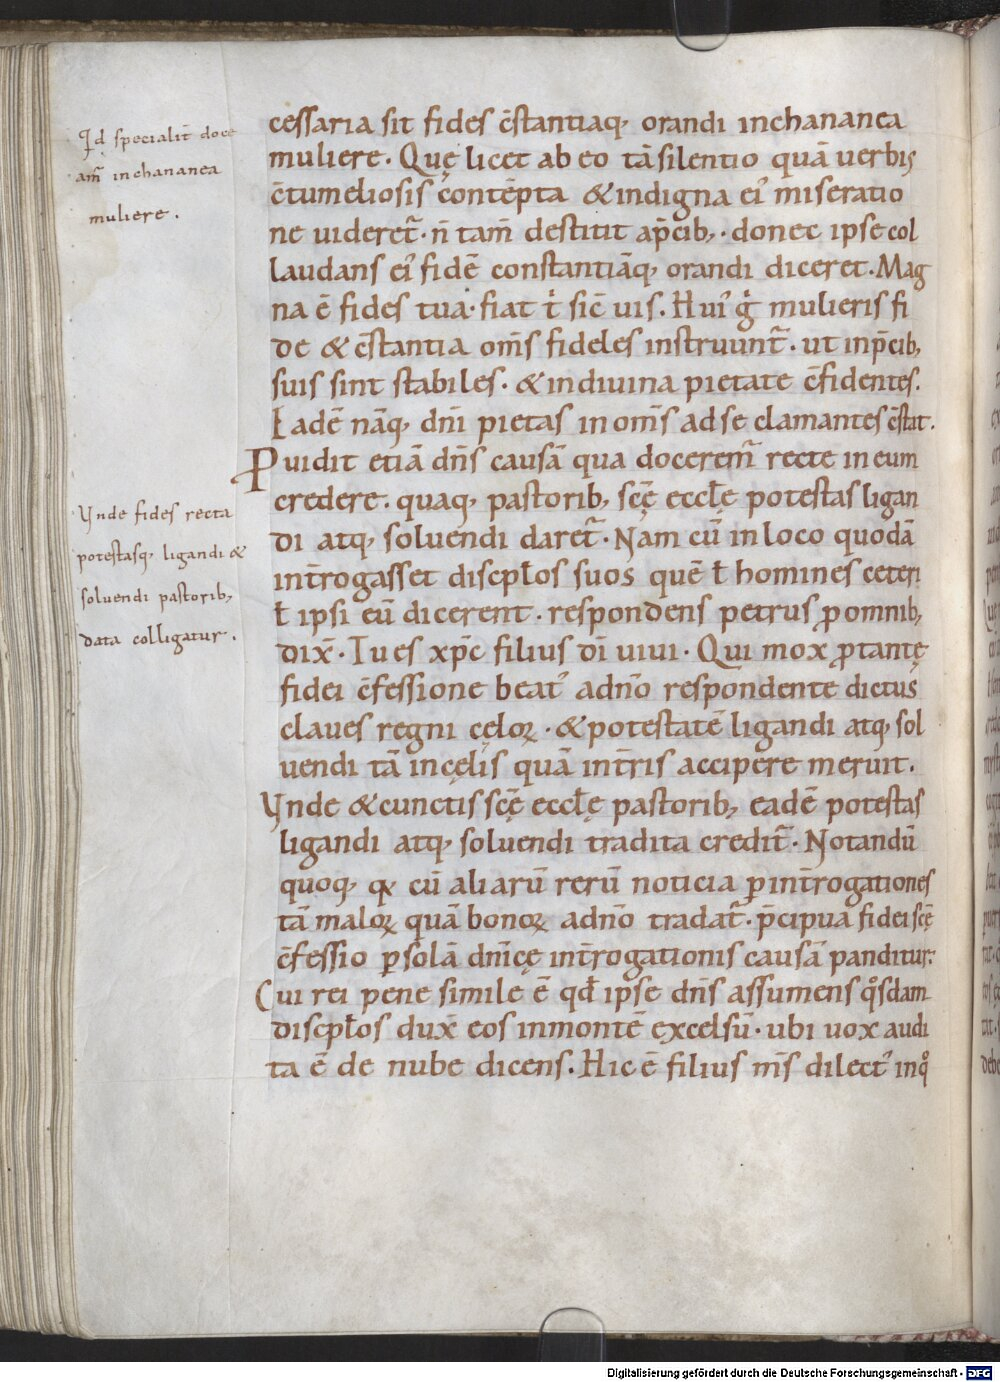 Id specialit̄ doce
am̄ inchananea
muliere.
cessaria sit fides c̄stantiaq, orandi inchananea
muliere. Quę licet ab eo tā silentio quā uerbis
c̄tumeliosis contēpta & indigna ei' miseratio
ne uideret̄. n̄ tam̄ destitit ap̄cib,. donec ipse col
laudans ei' fidē constantiāq, orandi diceret. Mag
na ē fides tua. fiat t̊ sic̄ uis. Hui' g̊ mulieris fi
de & c̄stantia om̄s fideles instruunt̄. ut inp̄cib,
suis sint stabiles. & indiuina pietate c̄fidentes.
Eadē nāq, dn̄i pietas in om̄s ad se clamantes c̄stat.
Puidit etiā dn̄s causā qua docerem̄ recte in eum
credere. quaq, pastorib, sc̄ę eccl̄ę potestas ligan
di atq, soluendi daret̄. Nam cū in loco quodā
int̄rogasset discpl̄os suos quē l̄ homines ceteri
l̄ ipsi eū dicerent. respondens petrus ꝓ omnib,
dix̄. Tu es xp̄c filius dī uiui. Qui mox ꝓ tantę
fidei c̄fessione beat' adn̄o respondente dictus
claues regni cęloꝝ. & potestatē ligandi atq, sol
uendi tā in cęlis quā int̄ris accipere meruit.
Vnde & cunctis sc̄ę eccl̄ę pastorib, eadē potestas
ligandi atq, soluendi tradita credit̄. Notandū
quoq, qꝫ cū aliarū rerū noticia ꝑ int̄rogationes
tā maloꝝ quā bonoꝝ adn̄o tradat̄. p̄cipua fidei sc̄ę
c̄fessio ꝑ solā dn̄icę int̄rogationis causā panditur.
Cui rei pene simile ē qd̄ ipse dn̄s assumens q̊sdam
discpl̄os dux̄ eos inmontē excelsū. ubi uox audi
ta ē de nube dicens. Hic ē filius m̄s dilect' inq̊
Vnde fides recta
potestasq, ligandi &
soluendi pastorib,
data colligatur.
Digitalisierung gefördert durch die Deutsche Forschungsgemeinschaft - DFG